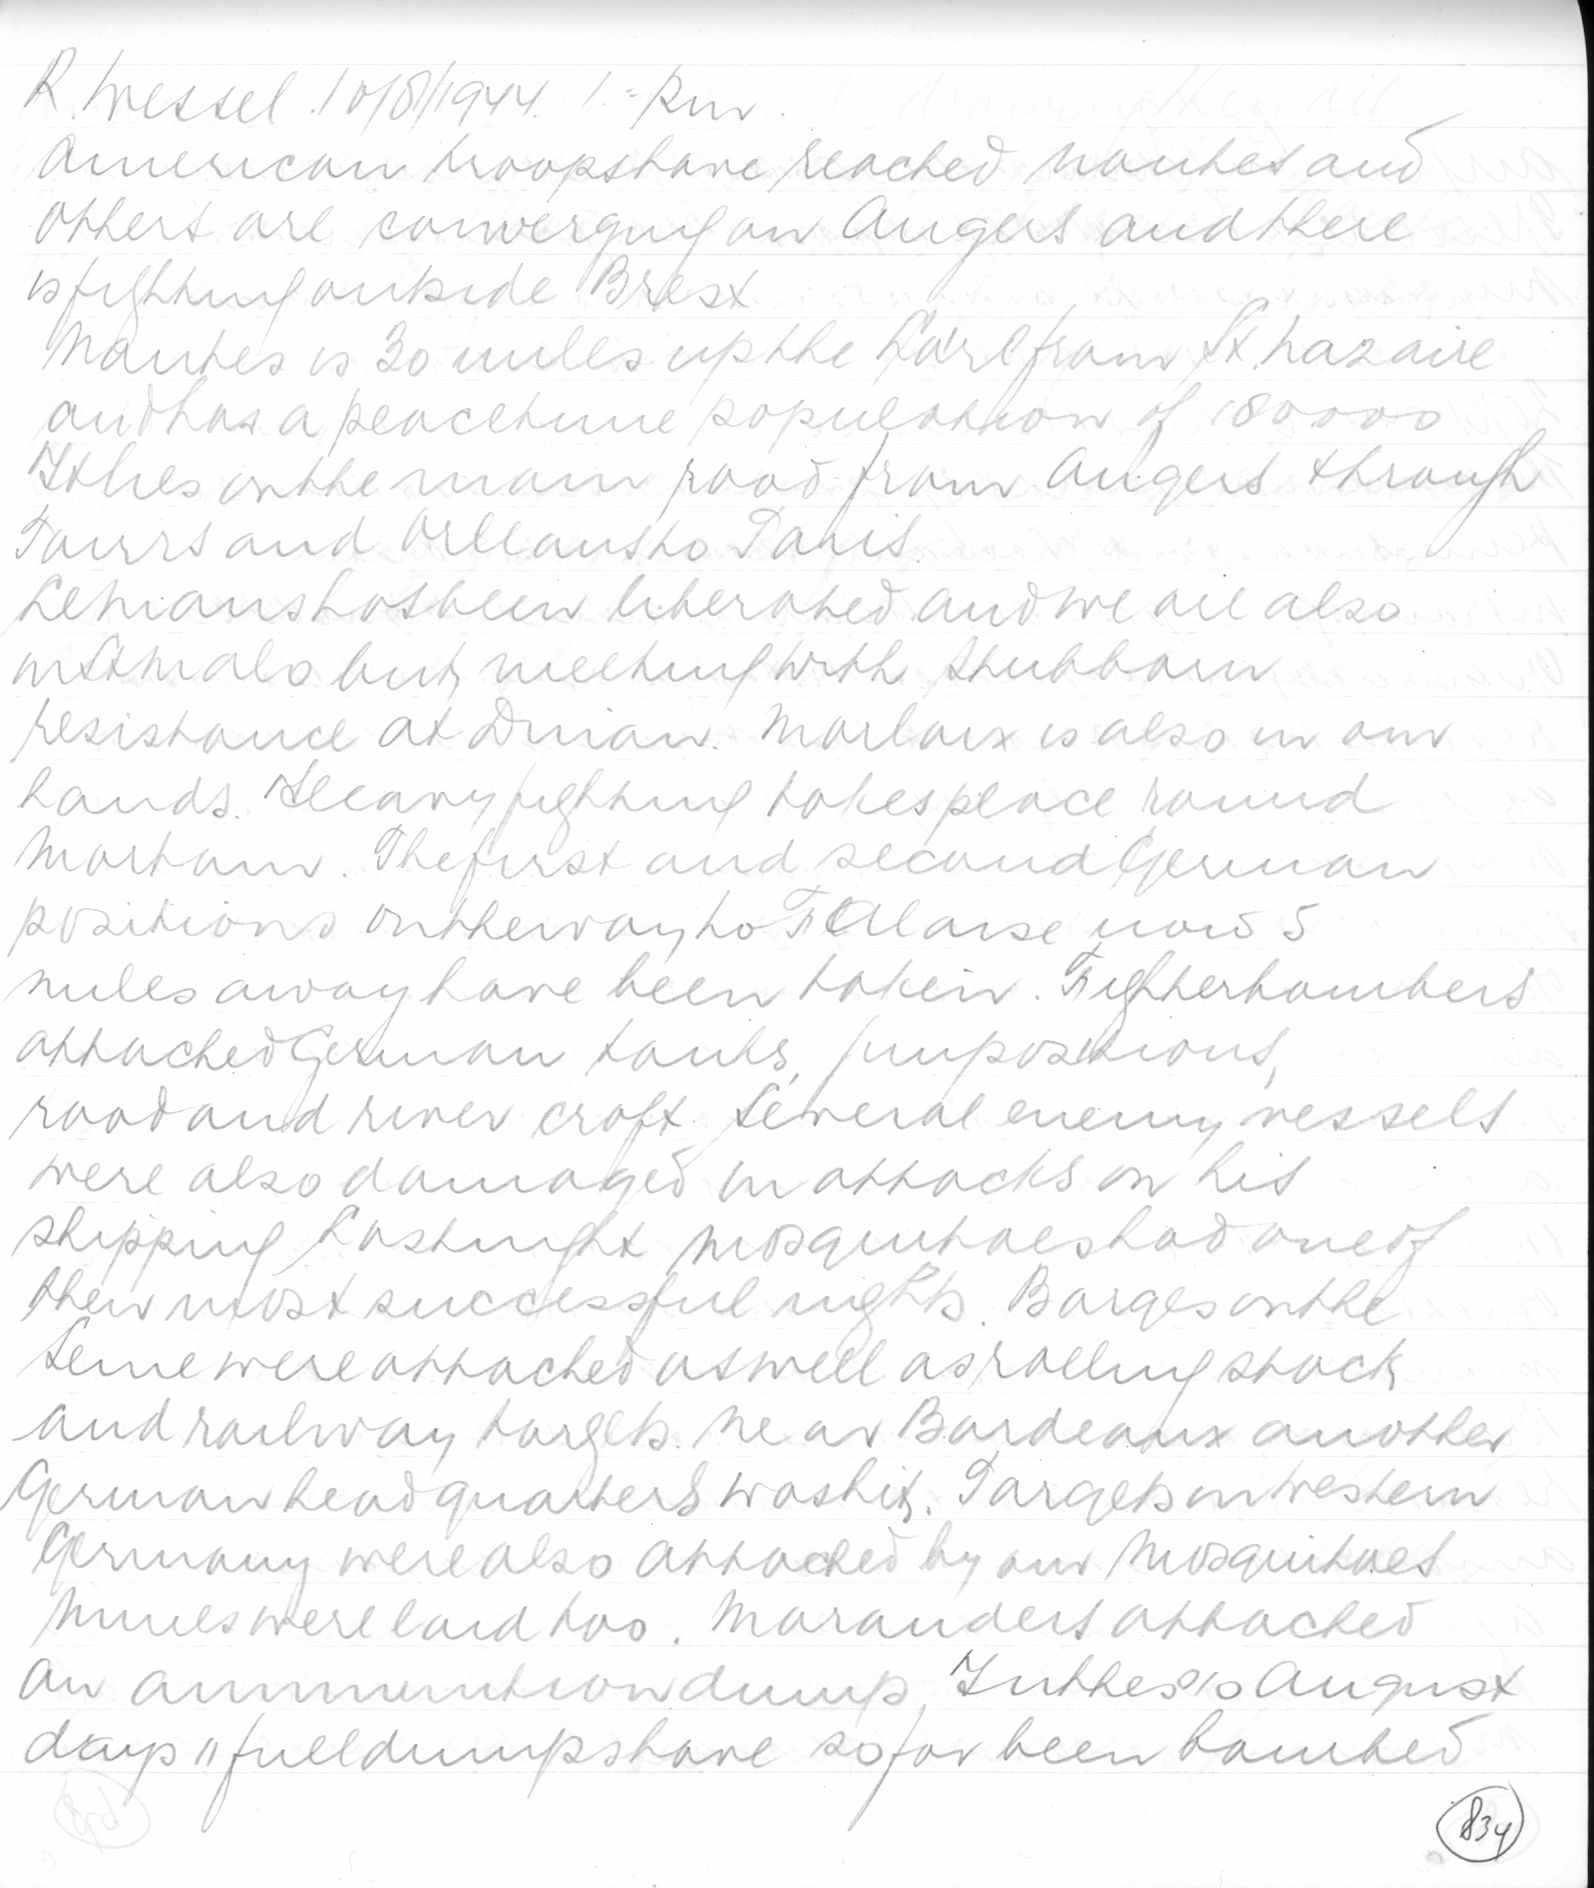 R. Wessel 10/8/1944. 1.= pm.
American troops have reached Nantes and
others are converging on Angers and there
is fighting outside Brest
Nantes is 30 miles up the Loire from St. Nazaire
and has a peacetime population of 180000
It lies on the main road from Angers through
Tours and Orlleans to Paris.
Le Mans has been liberated and we are also
in St Malo but meeting with stubborn
resistance at Dinan. Morlaix is also in our
hands. Heavy fighting takes place round
Mortain. The first and second German
positions on the way to Falaise now 5
miles away have been taken. Fighterbombers
attacked German tanks, gunpositions,
road and river craft. Several enemy vessels
were also damaged in attacks on his
shipping Last night Mosquitoes had one of
their most successful nights. Barges on the
Seine were attacked as well as rolling stock
and railway targets. Near Bordeaux another
German headquarters was hit. Targets in Western
Germany were also attacked by our Mosquitoes
Mines were laid too. Marauders attacked
an ammunition dump. In these 10 August
days 11 fuel dumps have so far been bombed
834